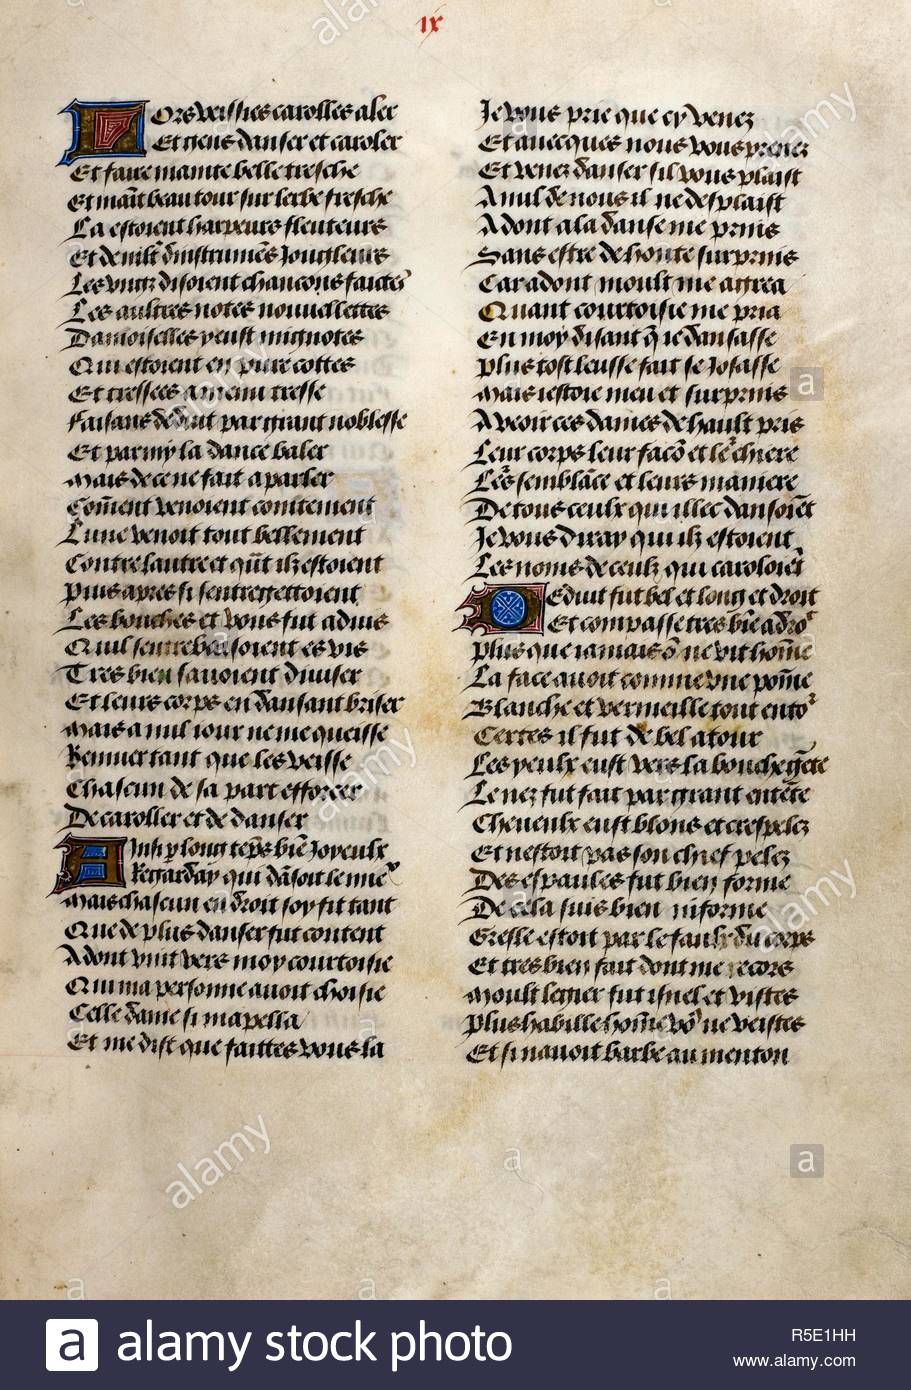 ix
Lors veissies carolles aler
Et gens danser et caroler
Et faire mainte belle tresche
Et maīt beau tour sur lerbe fresche
La estoient harpeurs fleuteurs
Et de mlt dinstrumēs Jougleurs
Les ungz disoient chancons faictes
Les aultres notes nouvellettes
Damoiselles y eust mignotes
Qui estoient en pure cottes
Et tressees a menu tresse
Faisans deduit par grant noblesse
Et parmy la dance baler
Mais de ce ne fait a parler
Comēnt venoient cointement
Lune venoit tout bellement
Contre lautre et qūt ilz estoient
Pius apres si sentregettoient
Les bouches et vous fut advis
Quil sentrebaisoient es vis
Tres bien savoient diviser
Et leurs corps en dansant briser
Mais a nul iour ne me queisse
Remuer tant que les veisse
Chascun de sa part efforcer
De caroller et de danser
Ainsi p long tēps biē Joyeulx
Regarday qui dāsoit le mieˣ
Mais chascun en droit soy fit tant
Que de plus danser fut content
Adont vint vers moy courtoisie
Qui ma personne avoit choisie
Celle dame si mapella
Et me dist que faittes vous la
Je vous prie que cy venez
Et avecques nous vous prenez
Et venez danser sil vous plaist
A nul de nous il ne desplaist
Adont a la danse me prins
Sans estre de honte surprins
Car adont moult me agrea
Quant courtoisie me pria
En moy disant q̄ ie dansasse
Plus tost leusse fait se Josasse
Mais iestoie meu et surprins
A veoir ces dames de hault pris
Leur corps leur facō et leˀ chiere
Leˀs semblāce et leurs maniere
De tous ceulx qui illec dansoiēt
Je vous diray qui ilz estoient
Les noms de ceulz qui caroloiēt
Deduit fut bel et long et droit
Et compasse tres biē a droˀ
Plus que iamais ō ne vit hōme
La face avoit comme une pōme
Blanche et vermeille tout entoˀ
Certes il fut de bel atour
Les yeulx eust vers la bouche gēte
Le nez fut fait par grant entēte
Cheveulx eust blons et crespelez
Et nestoit pas son chief pelez
Des espaules fut bien forme
De cela suis bien informe
Gresle estoit par le faulx du corps
Et tres bien fait dont me recors
Moult legier fut isnel et vistes
Plus habille hōme voˀ ne veistes
Et si navoit barbe au menton
alamy stock photo
R5E1HH
www.alamy.com